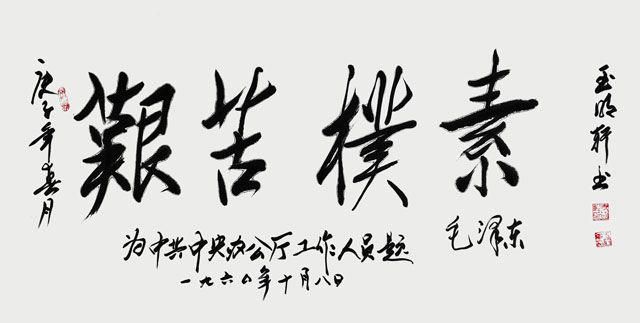 庚子年月
艱苦樸素
毛泽东
为中共中央办公厅工作人员题
一九六〇年十月八日
玉明轩书